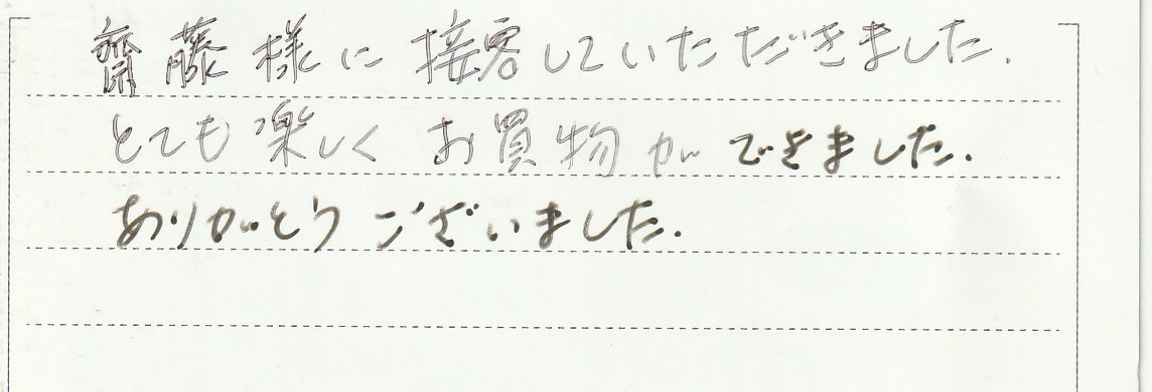 齋藤様に接客していただきました.
とても楽しくお買物ができました.
ありがとうございました.